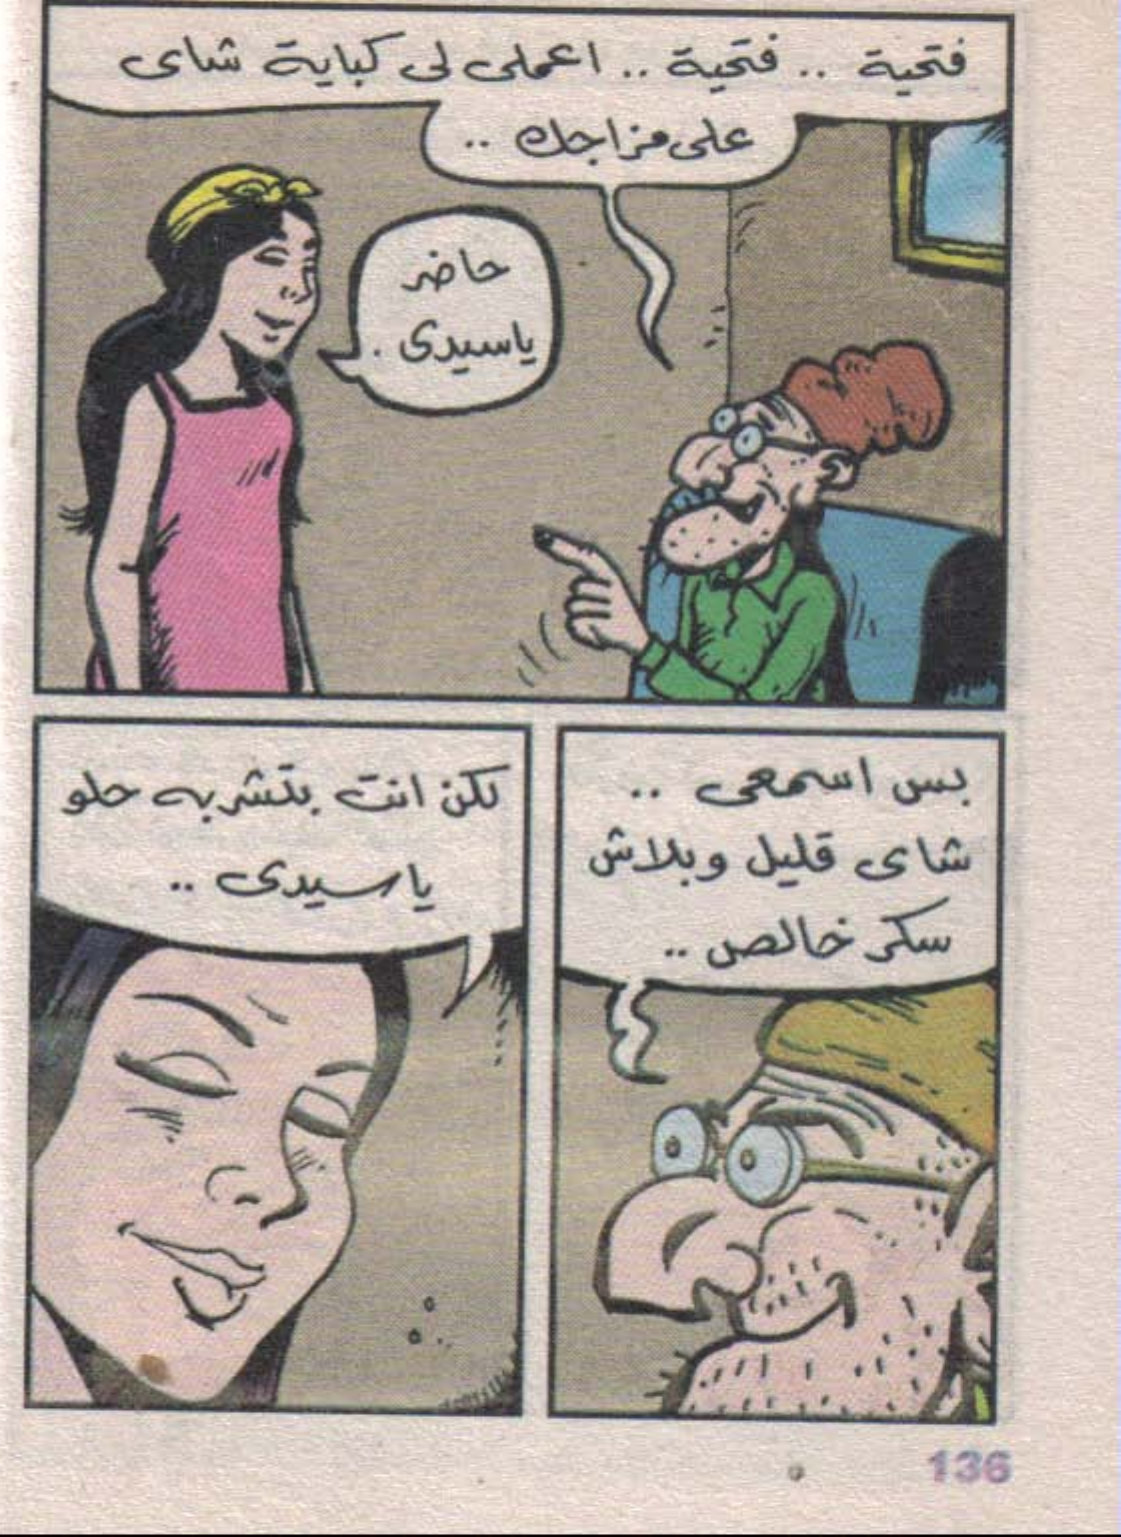 فتحية .. فتحية .. اعملى لى كباية شاى
على مزاجك ..
حاضر
ياسيدى .
بس اسمعى ..
شاى قليل وبلاش
سكر خالص ..
لكن انت بتشربه حلو
ياسيدى ..
136